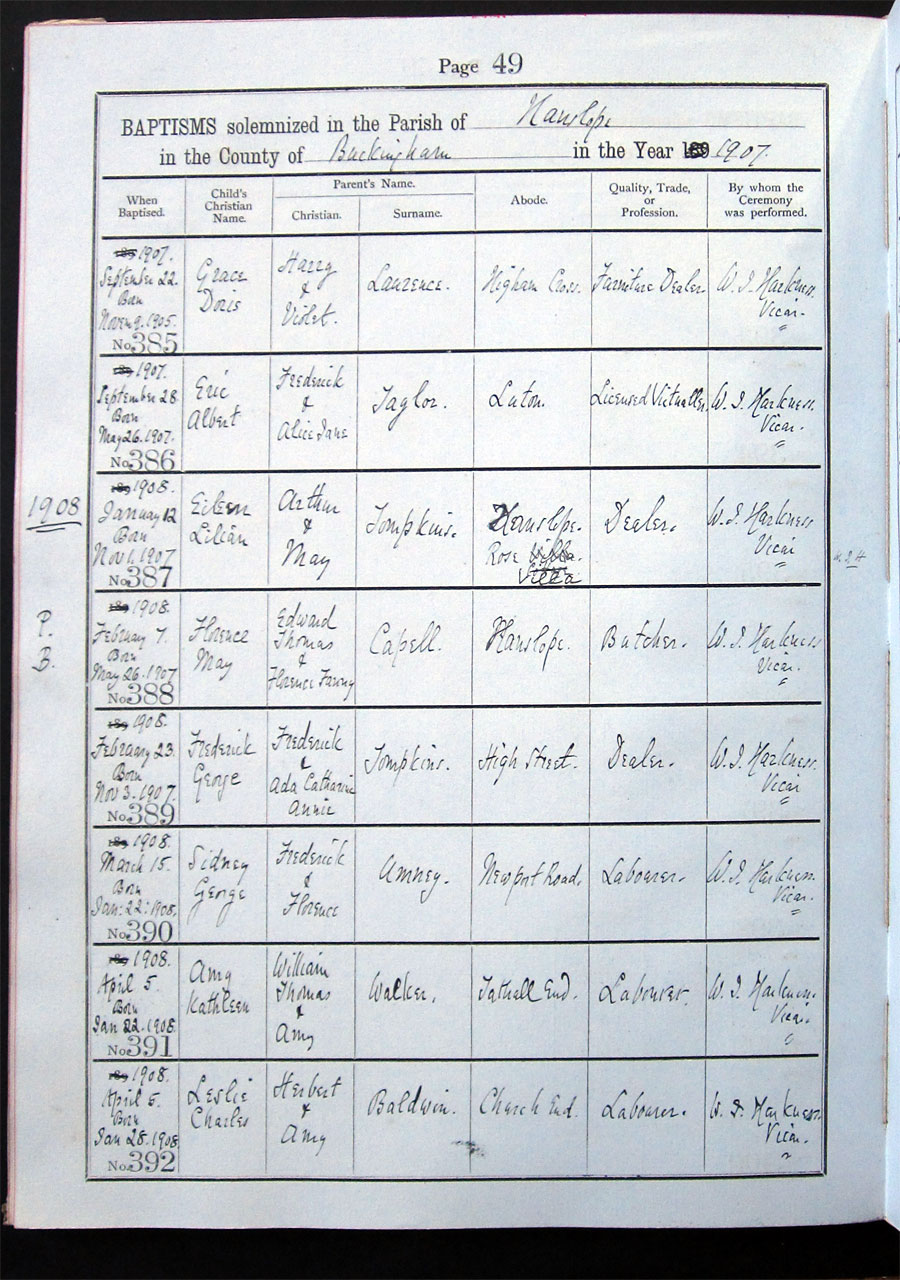 Page 49
BAPTISMS solemnized in the Parish of Hanslope
in the County of Buckingham in the Year 1907.
When Baptised. Child's Christian Name. Parent's Name. Christian. Surname. Abode. Quality, Trade, or Profession. By whom the Ceremony was performed.
189 1907.
September 22.
Born
Novem 9. 1905.
No. 385
Grace
Doris
Harry
&
Violet.
Laurence.
Higham Cross.
Furniture Dealer.
W. J. Harkness.
Vicar.
189 1907.
September 28.
Born
May 26. 1907.
No. 386
Eric
Albert
Frederick
&
Alice Jane
Taylor.
Luton.
Licensed Victualler.
W. J. Harkness.
Vicar.
1908
189 1908.
January 12
Born
Nov 1. 1907
No. 387
Eileen
Lilian
Arthur
&
May
Tompkins.
Hanslope.
Rose Villa.
Villa
Dealer.
W. J. Harkness
Vicar
P.
B.
189 1908.
February 7.
Born
May 26. 1907
No. 388
Florence
May
Edward
Thomas
&
Florence Fanny
Capell.
Hanslope.
Butcher.
W. J. Harkness
Vicar.
189 1908.
February 23.
Born
Nov 3. 1907.
No. 389
Frederick
George
Frederick
&
Ada Catharine
Annie
Tompkins.
High Street.
Dealer.
W. J. Harkness.
Vicar
189 1908.
March 15.
Born
Jan: 22: 1908.
No. 390
Sidney
George
Frederick
&
Florence
Amney.
Newport Road.
Labourer.
W. J. Harkness.
Vicar.
189 1908.
April 5.
Born
Jan 22. 1908.
No. 391
Amy
Kathleen
William
Thomas
&
Amy
Walker.
Tathall End.
Labourer.
W. J. Harkness.
Vicar.
189 1908.
April 5.
Born
Jan 28. 1908.
No. 392
Leslie
Charles
Herbert
&
Amy
Baldwin.
Church End.
Labourer.
W. J. Harkness
Vicar.